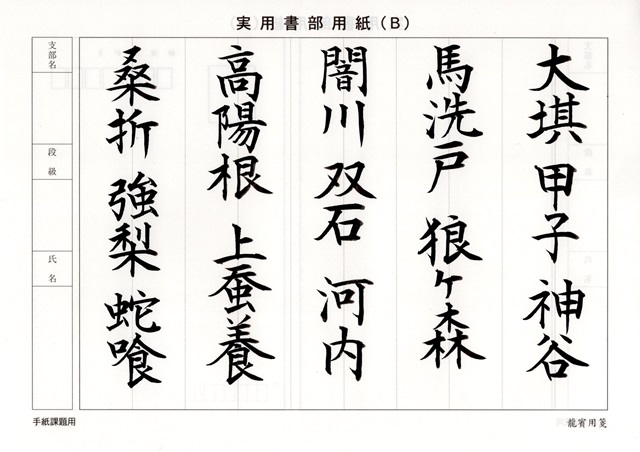 実用書部用紙(B)
大堪 甲子 神谷
馬洗戸 狼ケ森
闇川 双石 河内
高陽根 上蚕養
桑折 強梨 蛇喰
支部名
段級
氏名
手紙課題用
龍賓用箋